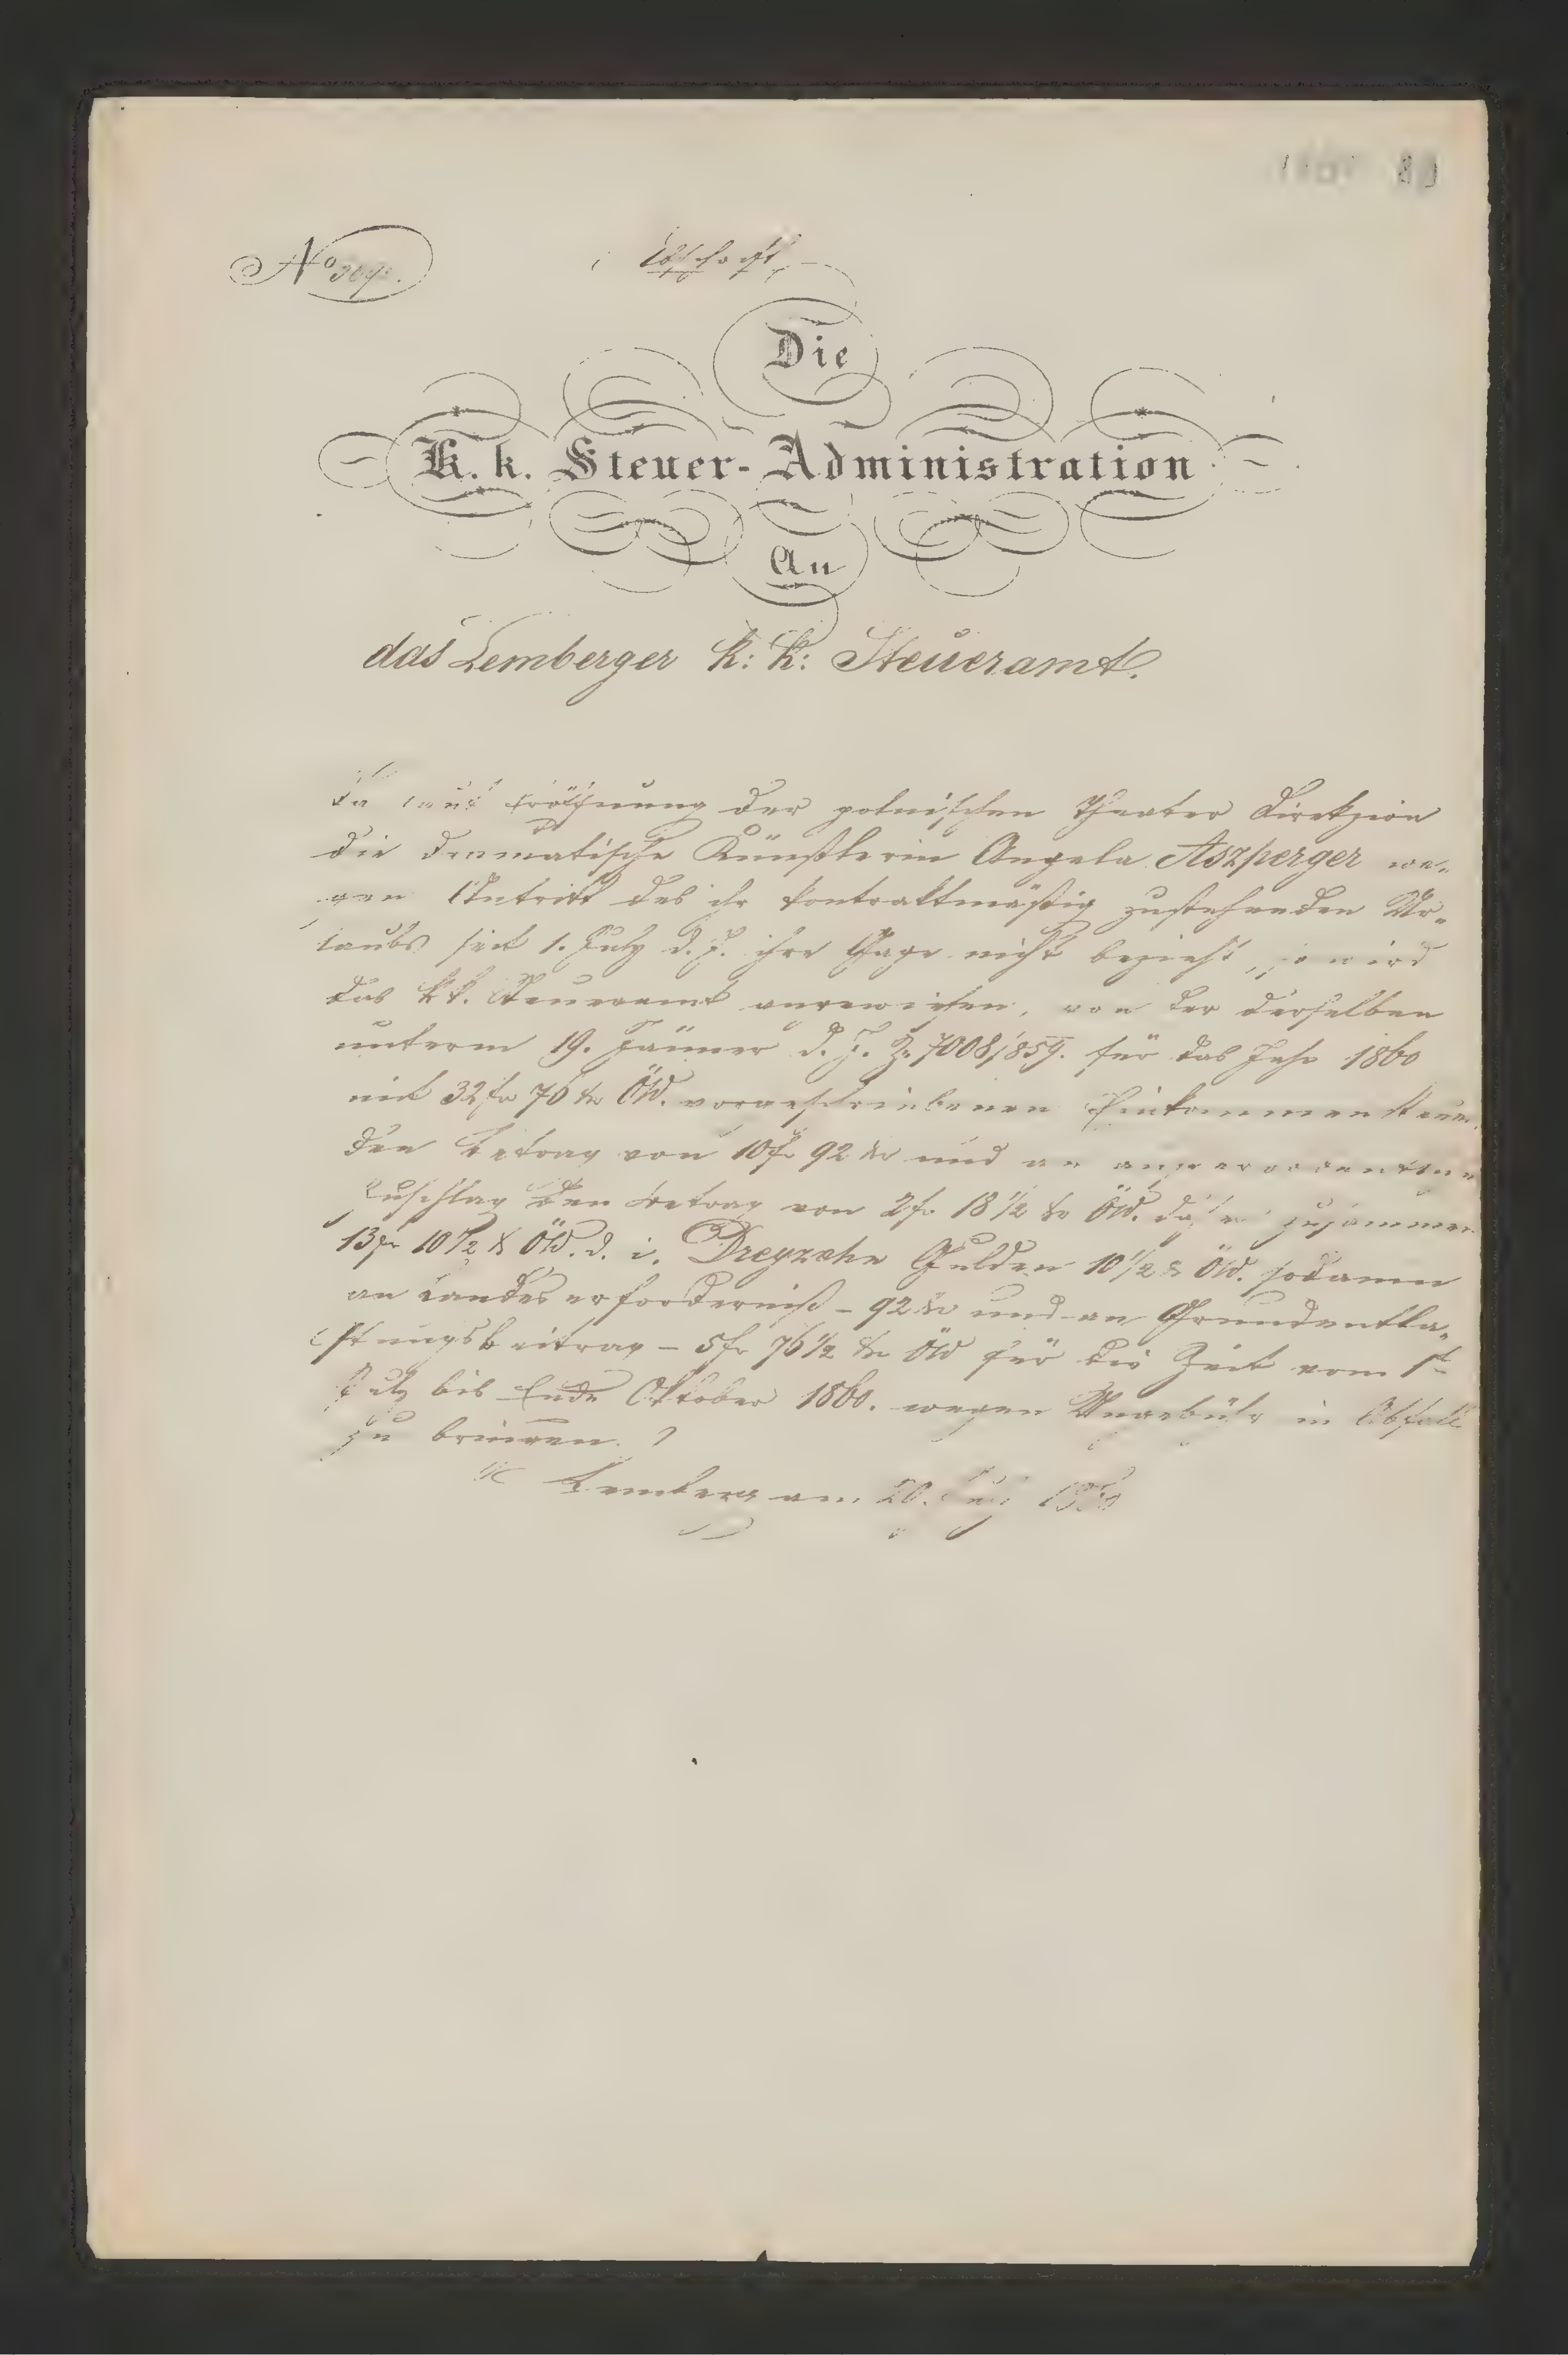 No
Abschrift
Die
K. k. Steuer-Administration
An
das Lemberger k: k: Steueramt.
Da laut Eröffnung der polnischen Theater Direkzion
die dramatische Künstlerin Angela Aszperger we-
gen Antritt des ihr kontraktmäßig zustehenden Ur-
laubs seit 1. July d. J. ihre Gage nicht bezieht, so wird
das kk. Steueramt angewiesen, von der derselben
unterm 19. Jänner d. J. Z. 7008/1859. für das Jahr 1860
mit 32 fr 76 kr ÖW. vorgeschriebenen Einkommensteuer
den Betrag von 10 fr 92 kr und an außerordentlichen
Zuschlag den Betrag von 2 fr 18 1/2 kr ÖW. daher zusammen
13 fr 10 1/2 kr ÖW. d. i. Dreyzehn Gulden 10 1/2 kr ÖW. sodann
an Landeserforderniß - 92 kr und an Grundentla-
stungsbeitrag - 5 fr 76 1/2 kr ÖW für die Zeit vom 1t
July bis Ende Oktober 1860. wegen Ungebühr in Abfall
zu bringen.
Lemberg am 20. July 1860